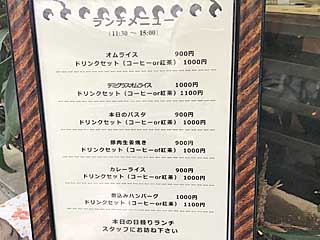 ランチメニュー
(11:30 ～ 15:00)
オムライス 900円
ドリンクセット (コーヒーor紅茶) 1000円
デミグラスオムライス 1000円
ドリンクセット (コーヒーor紅茶) 1100円
本日のパスタ 900円
ドリンクセット (コーヒーor紅茶) 1000円
豚肉生姜焼き 900円
ドリンクセット (コーヒーor紅茶) 1000円
カレーライス 900円
ドリンクセット (コーヒーor紅茶) 1000円
煮込みハンバーグ 1000円
ドリンクセット (コーヒーor紅茶) 1100円
本日の日替りランチ
スタッフにお訪ね下さい